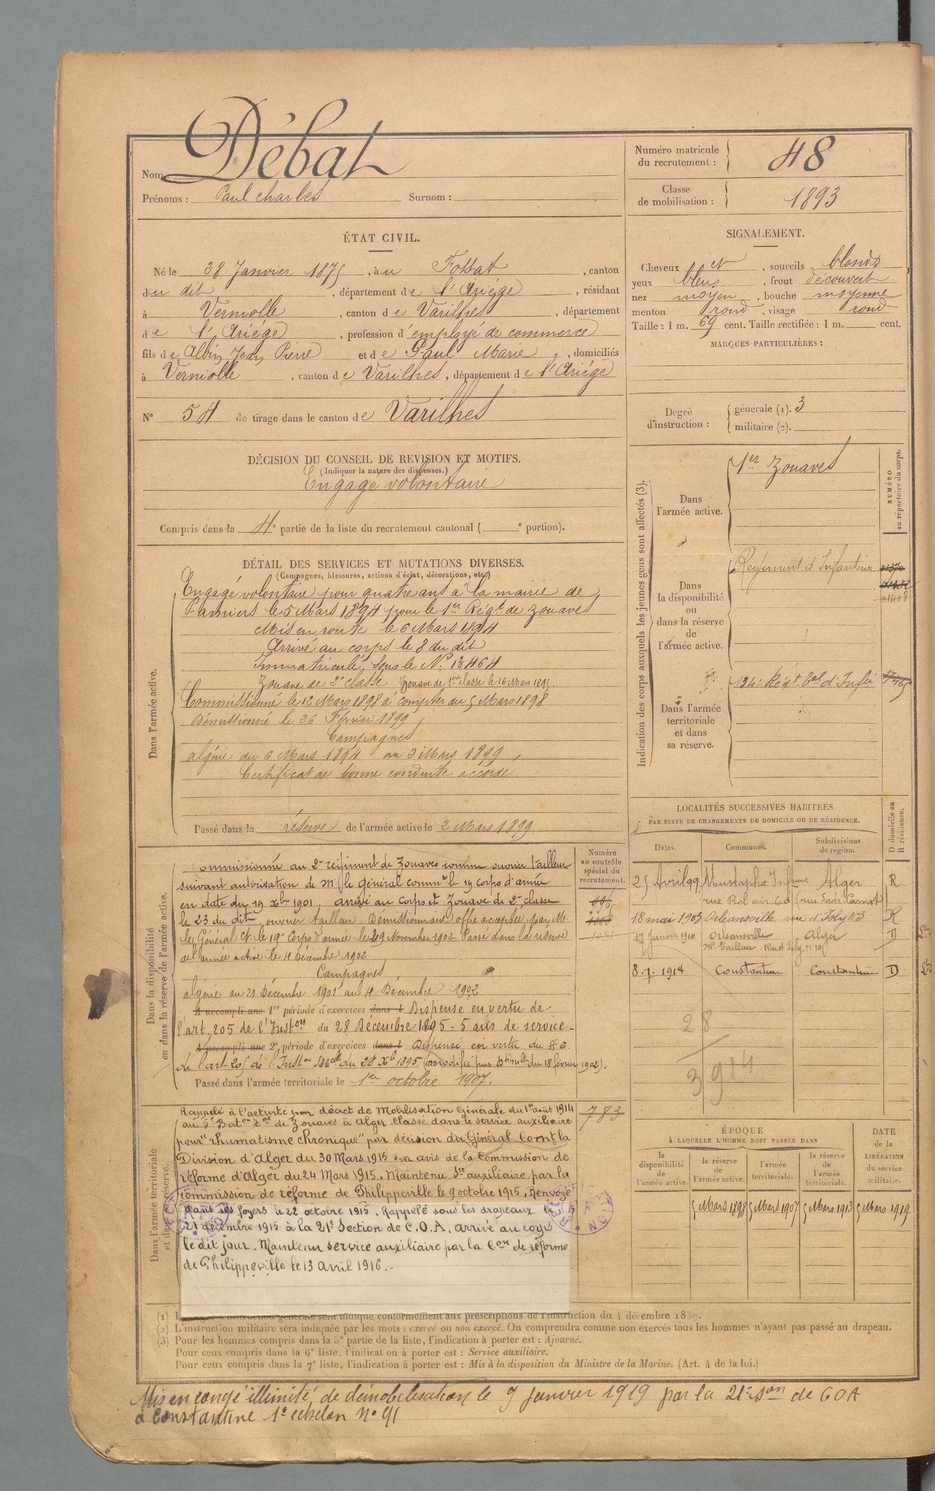 Nom Débat
Prénoms : Paul Charles Surnom :
Numéro matricule du recrutement : 48
Classe de mobilisation : 1893
ÉTAT CIVIL.
Né le 28 Janvier 1875, à u Fossat, canton
du dit, département de l'Ariège, résidant
à Verniolle, canton de Varilhes, département
de l'Ariége, profession d'employé de commerce
fils de Albin, Jean, Pierre et de Paul Marie, domiciliés
à Verniolle, canton de Varilhes, département de l'Ariége
N° 54 de tirage dans le canton de Varilhes
SIGNALEMENT.
Cheveux et, sourcils blonds
yeux bleus, front découvert
nez moyen, bouche moyenne
menton rond, visage rond
Taille : 1 m. 69 cent. Taille rectifiée : 1 m. cent.
MARQUES PARTICULIÈRES :
Degré d'instruction : générale (1). 3
militaire (2).
DÉCISION DU CONSEIL DE REVISION ET MOTIFS.
(Indiquer la nature des dispenses.)
Engagé volontaire
Compris dans la 4e partie de la liste du recrutement cantonal ( e portion).
DÉTAIL DES SERVICES ET MUTATIONS DIVERSES.
(Campagnes, blessures, actions d'éclat, décorations, etc.)
Dans l'armée active.
Engagé volontaire pour quatre ans à la mairie de
Pamiers le 5 Mars 1894 pour le 1er Régt de Zouaves
Mis en route le 6 Mars 1894
Arrivé au corps le 8 du dit
Immatriculé sous le N° 13464
Zouave de 2e classe Zouave de 1ère classe le 16 Mars 1895
Commissionné le 12 Mars 1898 à compter du 5 Mars 1898
Démissionné le 26 Février 1899
Campagnes
Algérie du 6 Mars 1894 au 3 Mars 1899
Certificat de bonne conduite accordé
Passé dans la réserve de l'armée active le 2 Mars 1899
Indication des corps auxquels les jeunes gens sont affectés (3).
NUMÉRO au répertoire du corps.
Dans l'armée active.
1er Zouaves
Dans la disponibilité ou dans la réserve de l'armée active.
Régiment d'Infanterie
Dans l'armée territoriale et dans sa réserve.
Régt tal d'Infie
LOCALITÉS SUCCESSIVES HABITÉES
PAR SUITE DE CHANGEMENTS DE DOMICILE OU DE RÉSIDENCE.
Dates. Communes. Subdivisions de région. D domicile ou R résidence.
25 Avril 99 Mustapha Inférieur Alger R
18 mai 1903 Orléansville rue d'Isly N°3 R
17 Janvier 1910 Orléansville Alger D
8.7.1914 Constantine Constantine D
28
3914
Dans la disponibilité ou dans la réserve de l'armée active.
Numéro au contrôle spécial du recrutement.
Commissionné au 2e régiment de Zouaves comme ouvrier tailleur
suivant autorisation de M le général commt le 19 corps d'armée
en date du 19 Xbre 1901, arrivé au Corps et Zouave de 2e classe
le 23 du dit, ouvrier tailleur. Démissionnaire offre acceptée par Mr
le Général Ct le 19e Corps d'armée le 29 Novembre 1902. Passé dans la réserve
de l'armée active le 4 Décembre 1902
Campagnes
Algérie du 23 Décembre 1901 au 4 Décembre 1902
A accompli une 1re période d'exercices dans l Dispensé en vertu de
l'art. 205 de l'Inston du 28 Décembre 1895 - 5 ans de service -
A accompli une 2e période d'exercices dans l Dispensé en vertu du § 3
de l'art 205 de l'Inston du 28 Xbre 1895 (modifié par du 18 février 1902).
Passé dans l'armée territoriale le 1er octobre 1907.
Dans l'armée territoriale et dans sa réserve.
Rappelé à l'activité par décret de Mobilisation Générale du 1er août 1914
au Baton tal de Zouaves à Alger. Classé dans le service auxiliaire
pour "rhumatisme chronique" par décision du Général Comt la
Division d'Alger du 30 Mars 1915 sur avis de la Commission de
réforme d'Alger du 24 Mars 1915. Maintenu Sce auxiliaire par la
commission de réforme de Philippeville le 9 octobre 1915. Renvoyé
dans ses foyers le 22 octobre 1915. Rappelé sous les drapeaux le
21 décembre 1915 à la 21e Section de C.O.A. arrivé au corps
le dit jour. Maintenu service auxiliaire par la Con de réforme
de Philippeville le 13 avril 1916.
783
ÉPOQUE
À LAQUELLE L'HOMME DOIT PASSER DANS
la disponibilité de l'armée active. la réserve de l'armée active. l'armée territoriale. la réserve de l'armée territoriale.
DATE de la LIBÉRATION du service militaire.
5 Mars 1898 5 Mars 1907 5 Mars 1913 5 Mars 1919
(2) L'instruction militaire sera indiquée par les mots : exercé ou non exercé. On comprendra comme non exercés tous les hommes n'ayant pas passé au drapeau.
(3) Pour les hommes compris dans la 5e partie de la liste, l'indication à porter est : Ajourné.
Pour ceux compris dans la 6e liste, l'indication à porter est : Service auxiliaire.
Pour ceux compris dans la 7e liste, l'indication à porter est : Mis à la disposition du Ministre de la Marine. (Art. 4 de la loi.)
Mis en congé illimité de démobilisation le 9 janvier 1919 par la 21e Son de COA
à Constantine 1e échelon N° 91